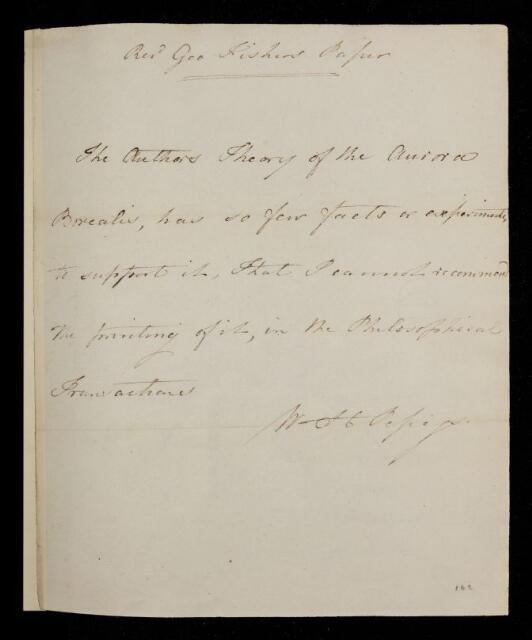 Revd Geo Fishers Paper
The Authors Theory of the Aurora
Borealis, has so few facts or experiments
to support it, that I cannot recommend
the printing of it, in the Philosophical
Transactions
Wm
162